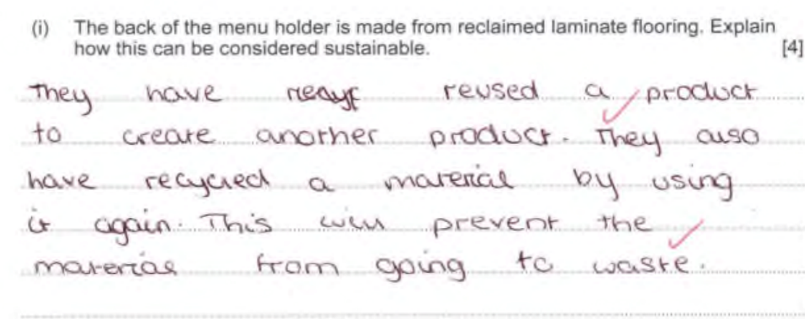 (i) The back of the menu holder is made from reclaimed laminate flooring. Explain
how this can be considered sustainable. [4]
They have reused a product
to create another product. They also
have recycled a material by using
it again. This will prevent the
material from going to waste.